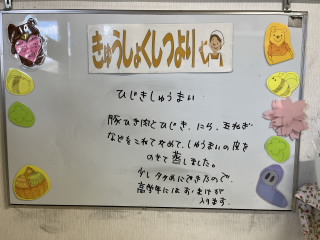 きゅうしょくしつより
ひじきしゅうまい
豚ひき肉とひじき、にら、玉ねぎ
などをこねてやめて、しゅうまいの皮を
のせて蒸しました。
少し多めにできたので、
高学年にはおまけが
入ります。